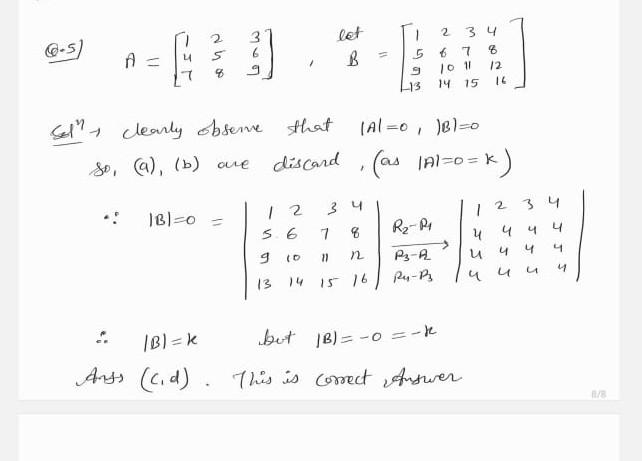 Q.5) A = [1 2 3 4 5 6 7 8 9] , let B = [1 2 3 4 5 6 7 8 9 10 11 12 13 14 15 16]
Solⁿ → clearly observe that |A|=0 , |B|=0
So, (a), (b) are discard , (as |A|=0=k)
∵ |B|=0 = |1 2 3 4 5 6 7 8 9 10 11 12 13 14 15 16| R₂-R₁ R₃-R R₄-R₃ → |1 2 3 4 4 4 4 4 4 4 4 4 4 4 4 4|
∴ |B|=k but |B|=-0=-k
Anss (c,d) . This is correct Answer
8/8